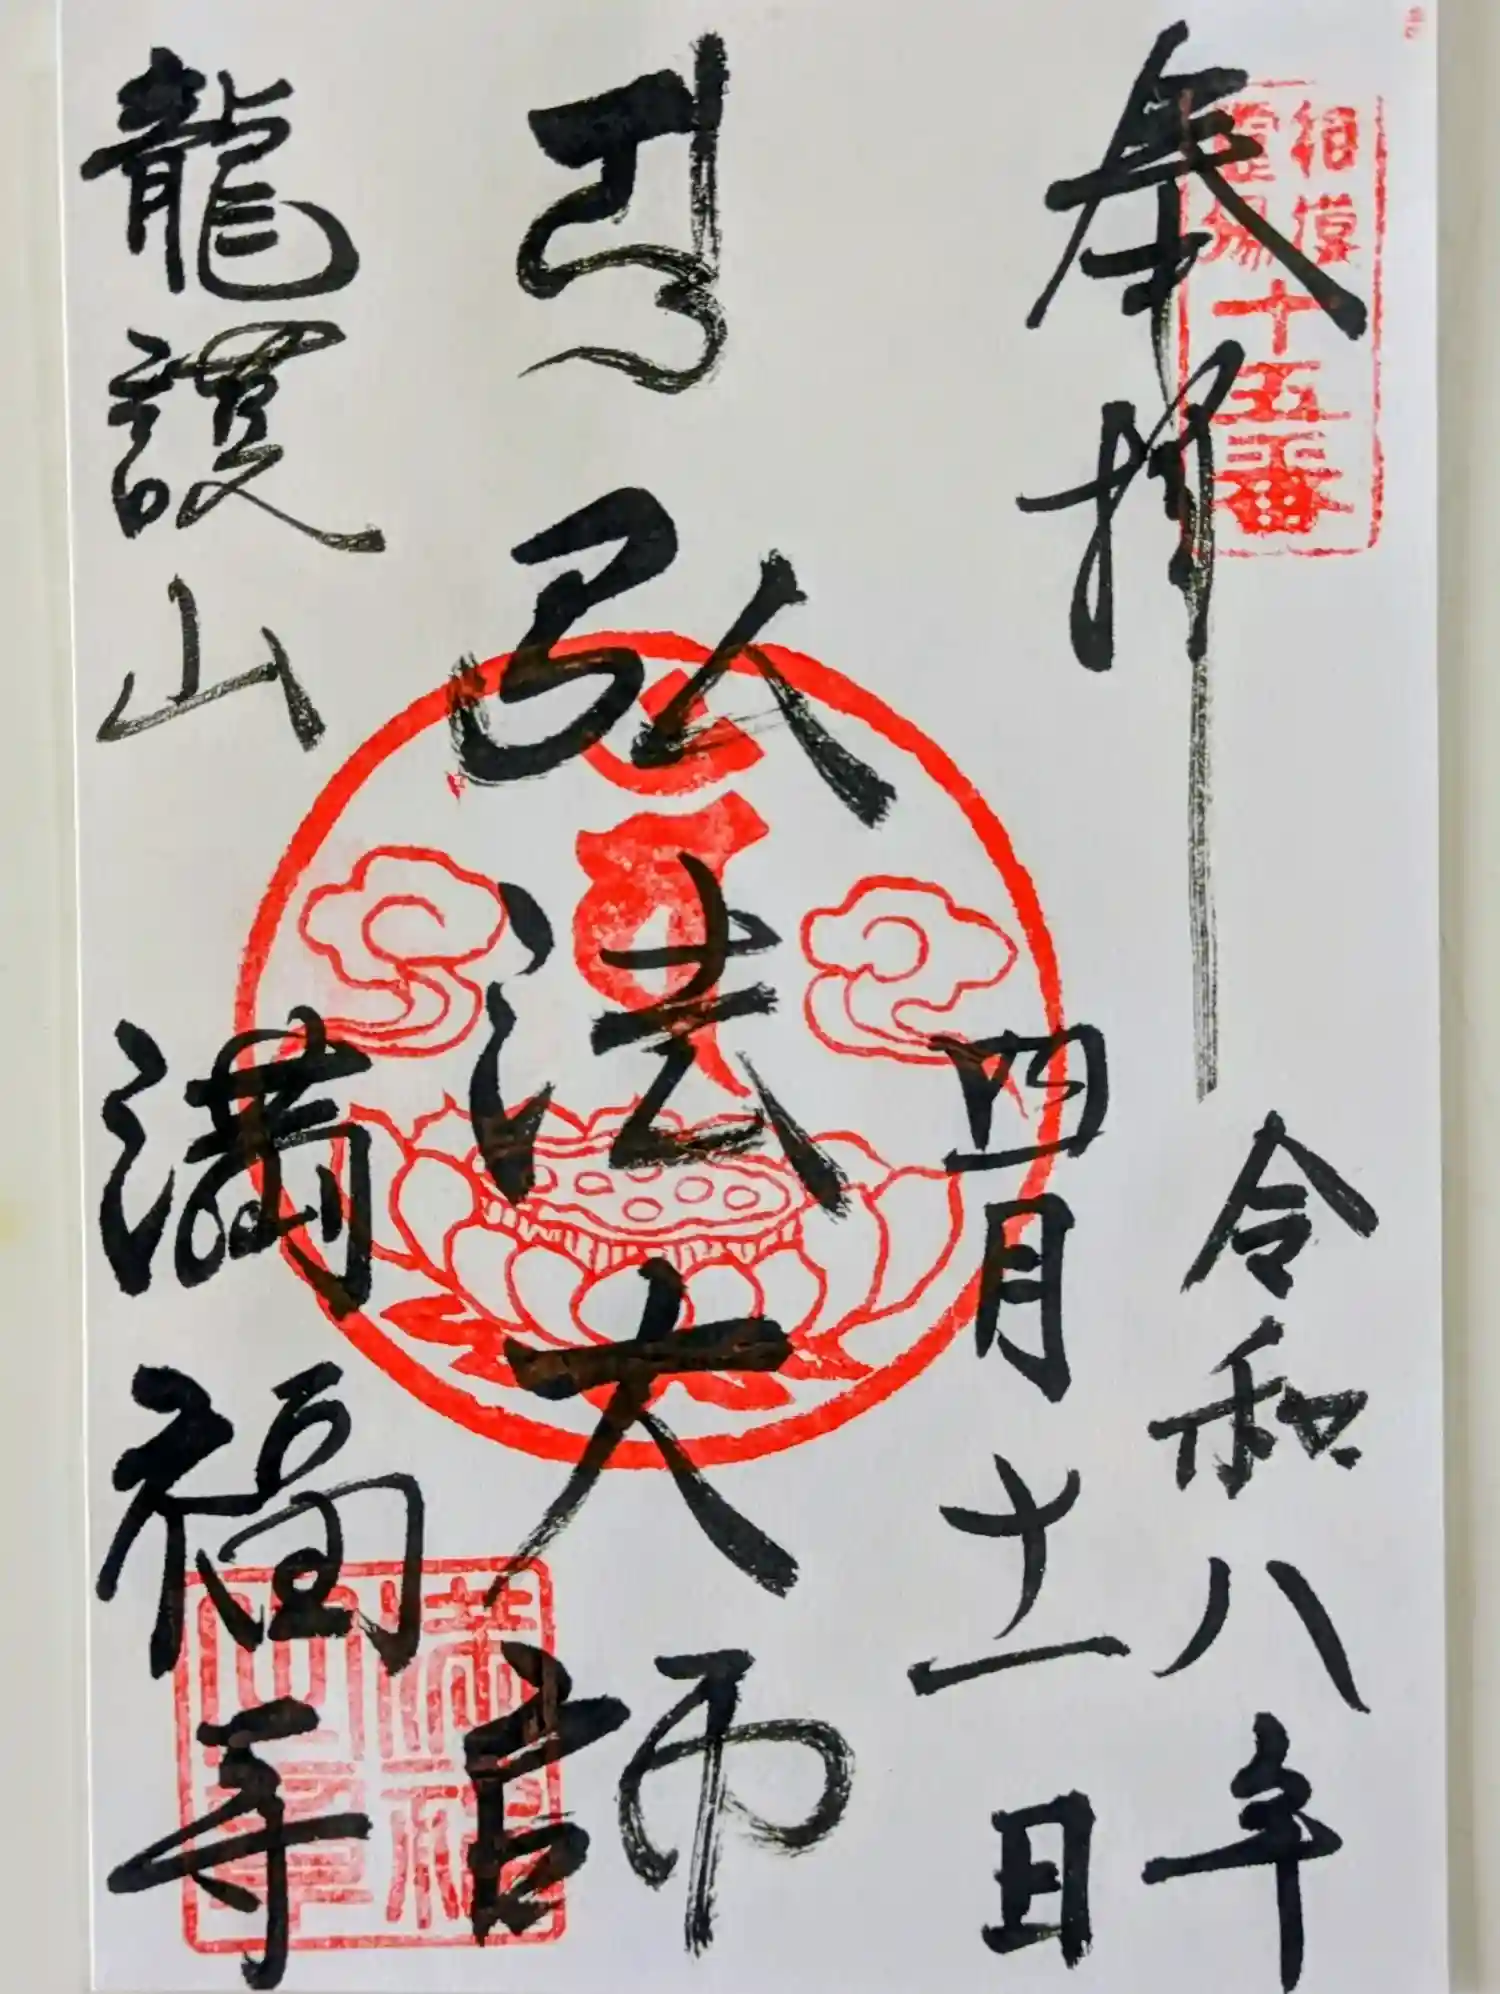 奉拝
相模
霊場
十五番
令和八年
四月十一日
弘法大師
龍護山
満福寺